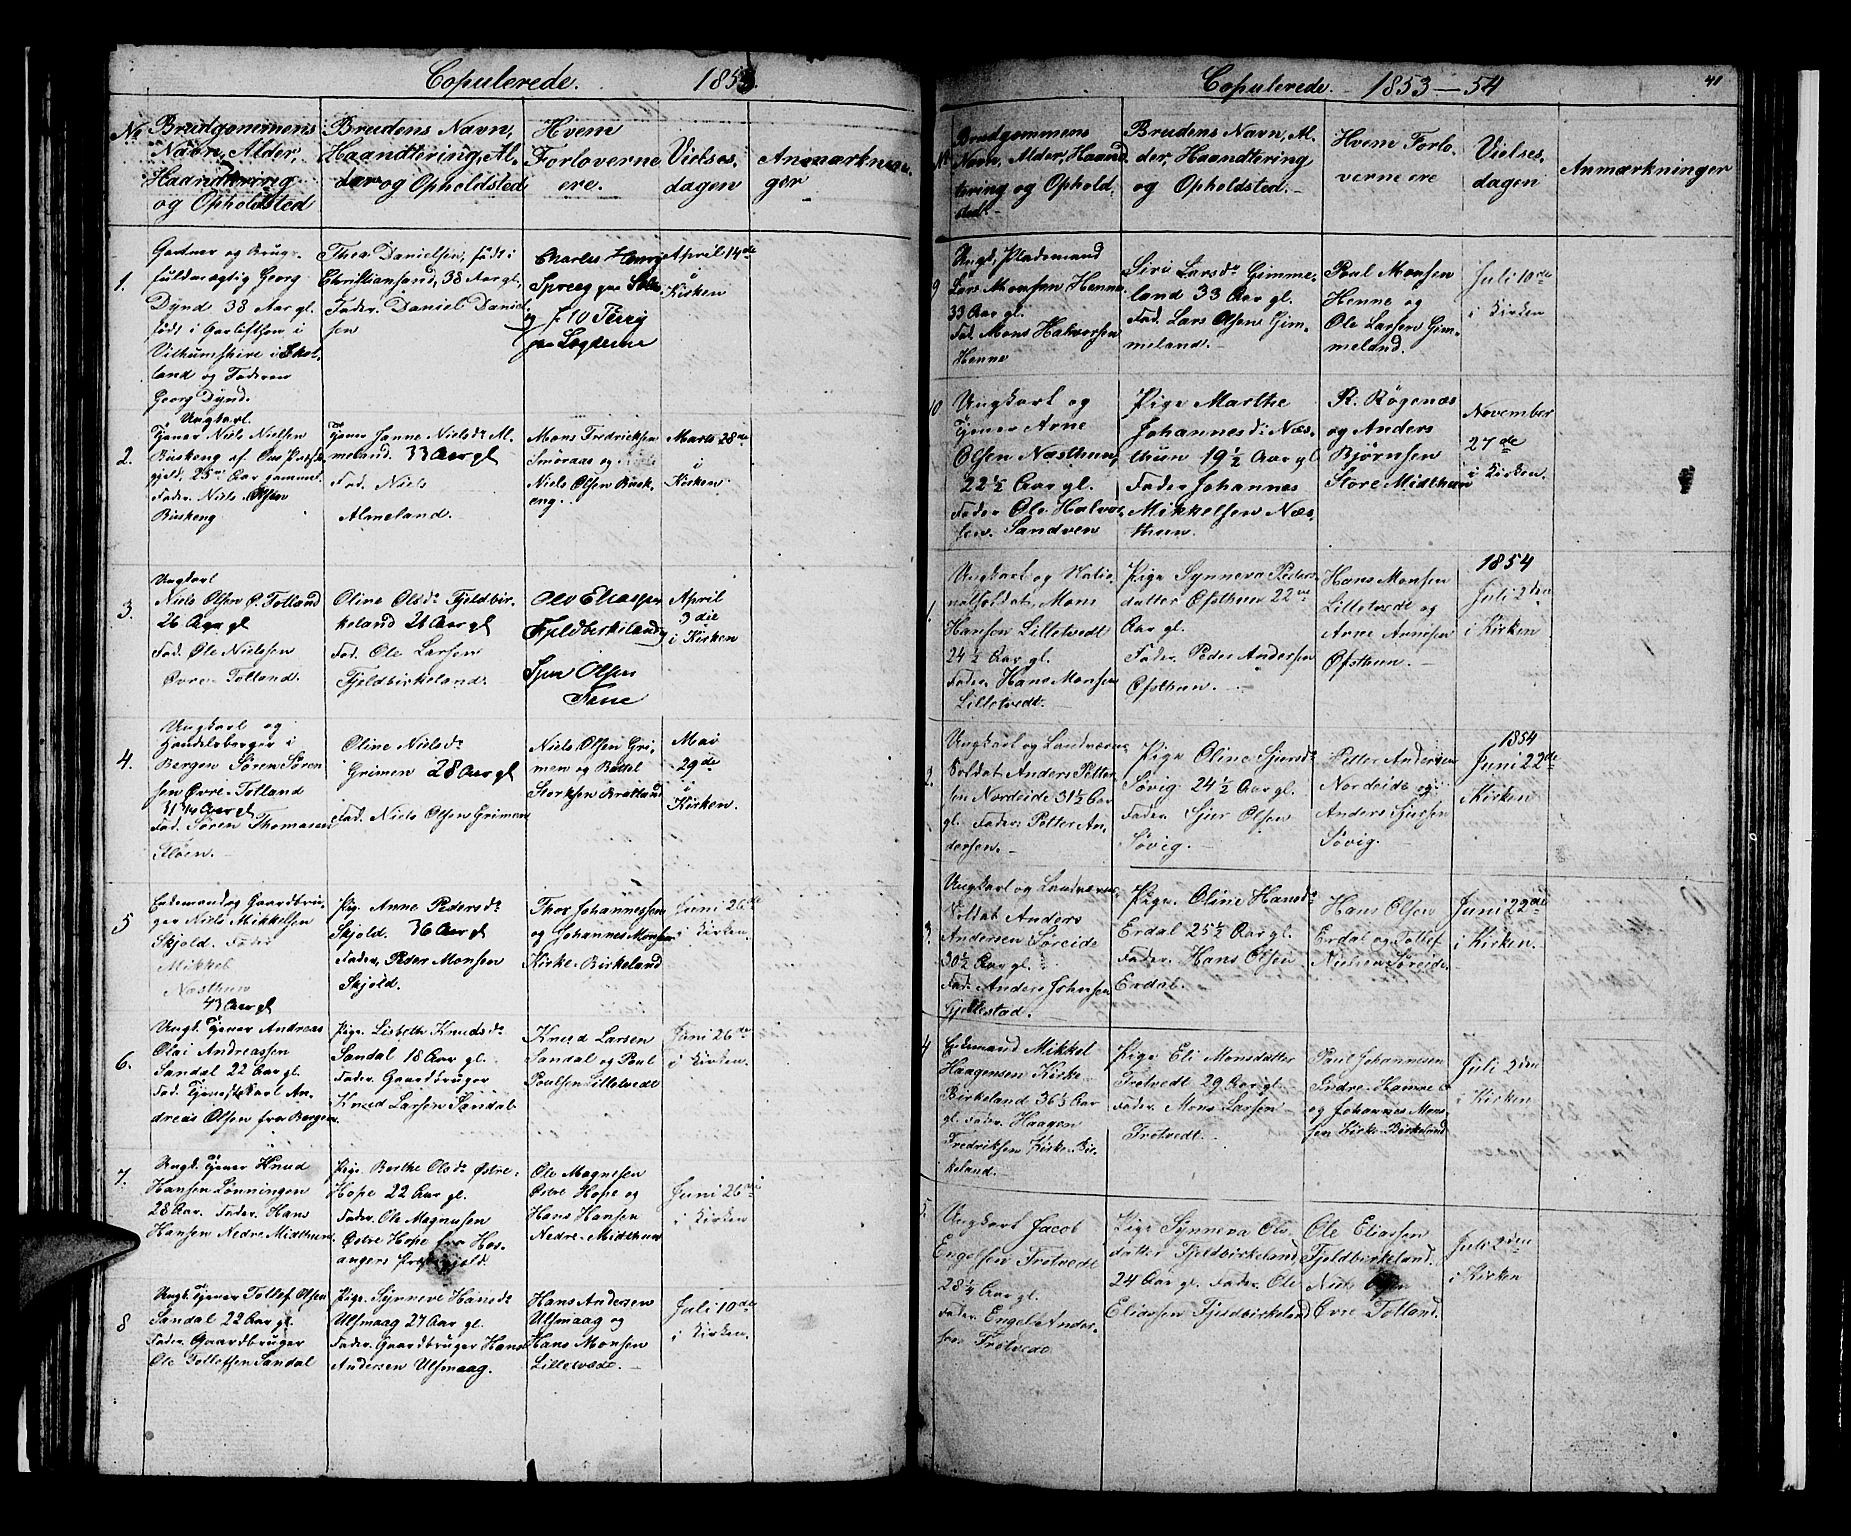 Copulerede. 1853.
No
Brudgommens
Navn, Alder,
Haandtering
og Opholdsted
Brudens Navn,
Haandtering, Al-
der og Opholdsted
Hvem
Forloverne
ere.
Vielses-
dagen
Anmærknin-
ger
1.
Gartner og Brugs-
fuldmægtig Georg
Dÿnd 38 Aar gl.
født i
i Skot-
land og Faderen
Georg Dÿnd.
Thea Danielsen, født i
Christiansand, 38 Aar gl.
Fader: Daniel Daniel-
sen
Charles Henry
paa
og
paa
April 14de
i
Kirken
2.
Ungkarl
Tjener Niels Nielsen
Buskeng af Ous Præste-
gjeld, 25 Aar gammel
Fader: Niels Olsen
Buskeng
Tjener Janne Nielsdr Al-
meland. 33 Aar gl
Fad. Niels
Almeland.
Mons Fredriksen
Smöraas og
Niels Olsen Busk-
eng.
Marts 28de
i
Kirken
3.
Ungkarl
Niels Olsen Ø. Tolland
26 Aar gl
Fad. Ole Nielsen
Øvre-Tolland.
Oline Olsdr Fjeldbir-
keland 21 Aar gl
Fad. Ole Larsen
Fjeldbirkeland.
Ole
Fjeldbirkeland
Olsen
Fane
April
3die
i Kirken
4.
Ungkarl og
Handelsborger i
Bergen Sören Sören-
sen Øvre-Tolland
31 3/4 Aar gl
Fad. Sören Thomasen
Flöen.
Oline Nielsdr
Grimen 28 Aar gl
Fad. Niels Olsen Grimen
Niels Olsen Gri-
men og Bottel
Storksen Bratland
Mai
29de
i
Kirken.
5
Enkemand og Gaardbru-
ger Niels Mikkelsen
Skjold. Fader
Mikkel
Næsthun
43 Aar gl
Pige Anne Pedersdr
Skjold. 36 Aar gl
Fader, Peder Monsen
Skjold.
Thor Johannessen
og Johannes Monsen
Kirke-Birkeland
Juni 26de
i Kirken.
6.
Ungk. Tjener Andreas
Olai Andreassen
Sandal 22 Aar gl.
Fad. Tjenestekarl An-
dreas Olsen fra Bergen.
Pige Lisbeth Knudsdr
Sandal 18 Aar gl.
Fader. Gaardbruger
Knud Larsen Sandal
Knud Larsen
Sandal og Poul
Poulsen Lilletvedt
Juni 26de
i Kirken.
7.
Ungk. Tjener Knud
Hansen Lønningen
28 Aar. Fader. Hans
Hansen Nedre Midthun
Pige Berthe Olsdr Østre-
Hope 22 Aar gl.
Fader. Ole Magnusen
Østre Hope fra Ho-
angers Præstegjeld.
Ole Magnesen
Østre Hope og
Hans Hansen
Nedre-Midthun
Juni 26de
i Kirken
8
Ungk. Tjener Tollef Olsen
Sandal 22 Aar gl.
Fader. Gaardbruger
Ole Tollefsen Sandal
Pige Synneve Hansdr
Ulsmaag 27 Aar gl.
Fader. Gaardbruger Hans
Andersen Ulsmaag.
Hans Andersen
Ulsmaag og
Hans Monsen
Lilletvedt.
Juli 10de
i Kirken.
Copulerede. 1853-54
41
No
Brudgommens
Navn, Alder, Haand-
tering og Ophold-
sted.
Brudens Navn, Al-
der, Haandtering
og Opholdsted.
Hvem Forlo-
verne ere
Vielses-
dagen
Anmærkninger
9
Ungk. Pladsmand
Lars Monsen Henne
33 Aar gl.
Fad. Mons Halvorsen
Henne
Siri Larsdr Gimme-
land 33 Aar gl.
Fad. Lars Olsen Gim-
meland.
Poul Monsen
Henne og
Ole Larsen Gim-
meland.
Juli 10de
i Kirken
10
Ungkarl og
Tjener Arne
Olsen Næsthun,
22 1/2 Aar gl.
Fader Ole Halvor-
sen Sandven
Pige Marthe
Johannesdr Næs-
thun 19 1/2 Aar gl
Fader Johannes
Mikkelsen Næs-
thun.
R. Røgenæs
og Anders
Bjørnsen
Store Midthun
November
27de
i Kirken.
1.
Ungkarl og Natio-
nalsoldat Mons
Hansen Lilletvedt
24 1/2 Aar gl.
Fader. Hans Monsen
Lilletvedt.
Pige Synneva Peders-
datter Øfsthun 22
Aar gl.
Fader. Peder Andersen
Øfsthun.
Hans Monsen
Lilletvedt og
Arne Arnesen
Øfsthun.
1854
Juli 2den
i Kirken
2.
Ungkarl og Landværns-
Soldat Anders Petter-
sen Nordeide 31 1/2 Aar
gl. Fader. Petter An-
dersen.
Pige Oline Sjursdr
Søvig 24 1/2 Aar gl.
Fader. Sjur Olsen
Søvig.
Petter Andersen
Nordeide og
Anders Sjursen
Søvig.
1854
Juni 22de
i Kirken
3.
Ungkarl og Landværns-
Soldat Anders
Andersen Søreide
30 1/2 Aar gl.
Fad. Anders Johnsen
Tjellestad.
Pige Oline Hansdr
Erdal 25 1/2 Aar gl.
Fader. Hans Olsen
Erdal.
Hans Olsen
Erdal og Tollef
Nielsen Søreide.
Juni 22de
i Kirken.
4
Enkemand Mikkel
Haagensen Kirke-
Birkeland 36 1/2 Aar
gl. Fader. Haagen
Fredriksen Kirke-Bir-
keland.
Pige Eli Monsdatter
Trotvedt 29 Aar gl.
Fader. Mons Larsen
Trotvedt.
Paul Johannesen
Indre-Hamre
og Johannes Mon-
sen Kirke-Birkeland
Juli 2den
i Kirken.
5.
Ungkarl Jacob
Engelsen Trotvedt
28 1/2 Aar gl.
Fader. Engel Ander-
sen Trotvedt
Pige Synneva Ols-
datter Fjeldbirkeland,
24 Aar gl. Fader. Ole
Eliassen Fjeldbirkeland
Ole Eliassen
Fjeldbirkeland.
Niels Olsen
Øvre Tolland.
Juli 2den
i Kirken